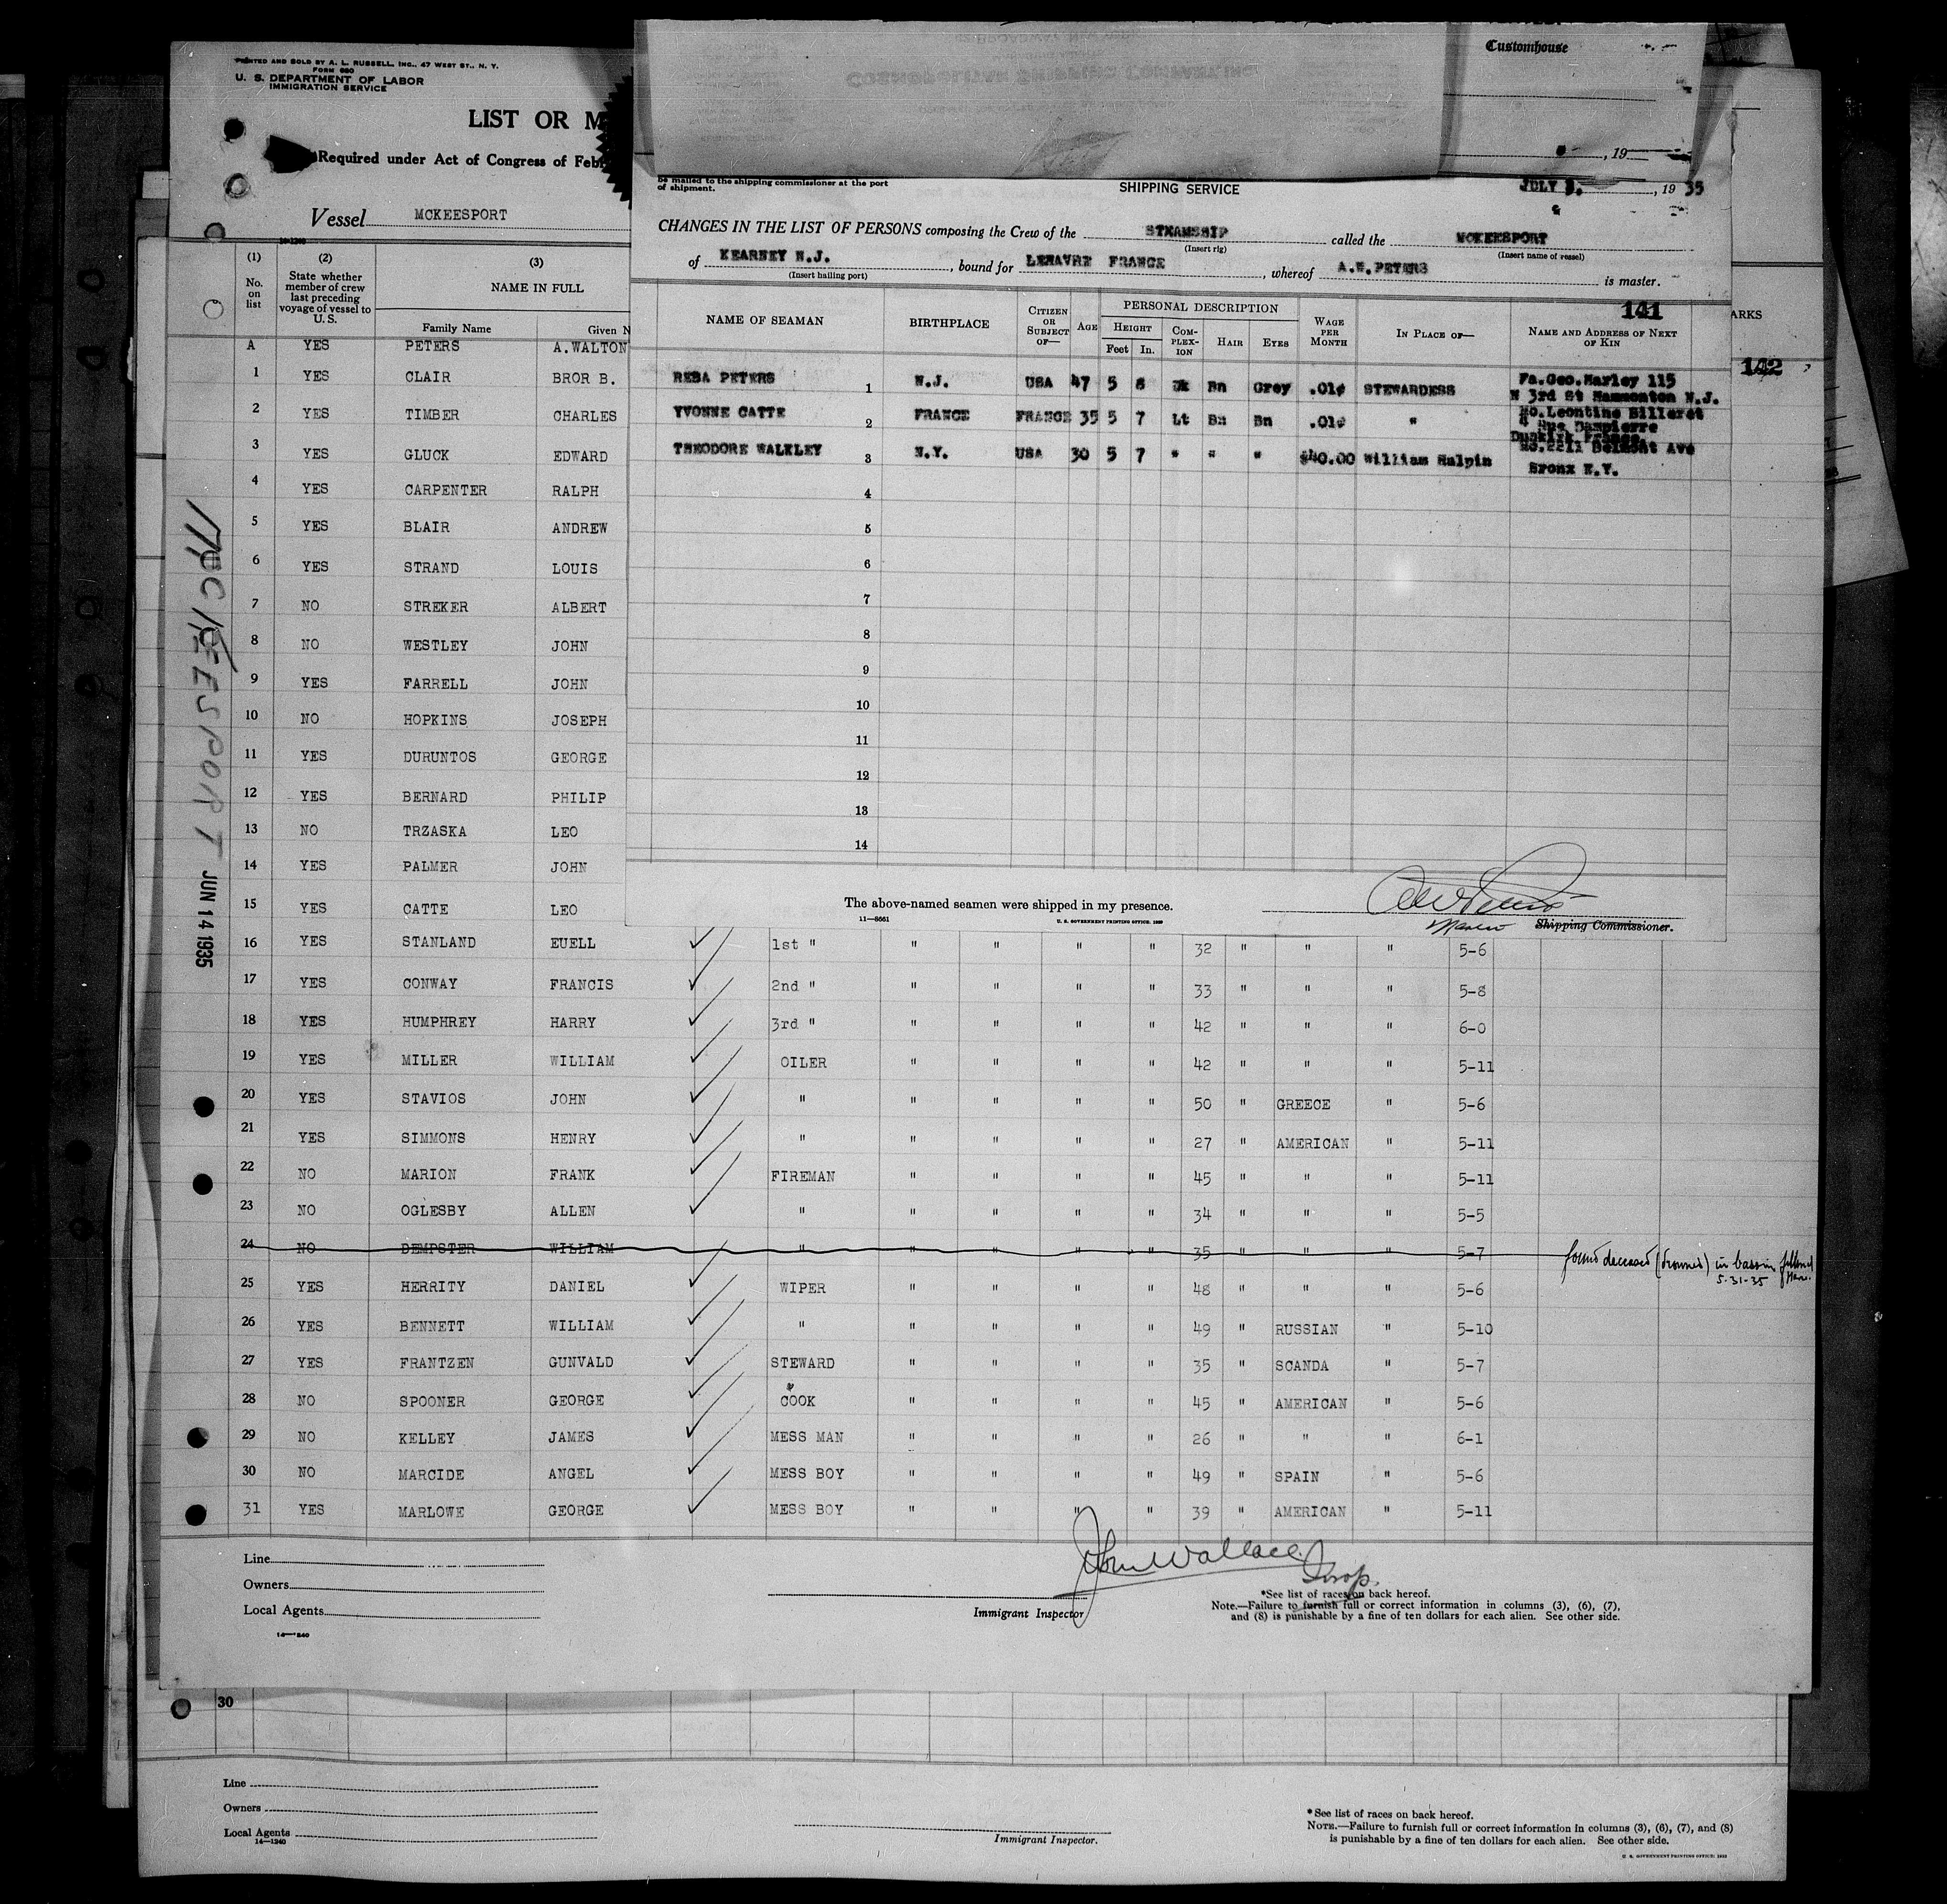 PRINTED AND SOLD BY A. L. RUSSELL, INC., 47 WEST ST., N. Y.
FORM 680
U. S. DEPARTMENT OF LABOR
IMMIGRATION SERVICE
LIST OR M
Required under Act of Congress of Feb
Vessel MCKEESPORT
(1) (2) (3)
No. on list
State whether member of crew last preceding voyage of vessel to U. S.
NAME IN FULL
Family Name Given N
A YES PETERS A.WALTON
1 YES CLAIR BROR B.
2 YES TIMBER CHARLES
3 YES GLUCK EDWARD
4 YES CARPENTER RALPH
5 YES BLAIR ANDREW
6 YES STRAND LOUIS
7 NO STREKER ALBERT
8 NO WESTLEY JOHN
9 YES FARRELL JOHN
10 NO HOPKINS JOSEPH
11 YES DURUNTOS GEORGE
12 YES BERNARD PHILIP
13 NO TRZASKA LEO
14 YES PALMER JOHN
15 YES CATTE LEO
16 YES STANLAND EUELL 1st " " " " " 32 " " " 5-6
17 YES CONWAY FRANCIS 2nd " " " " " 33 " " " 5-8
18 YES HUMPHREY HARRY 3rd " " " " " 42 " " " 6-0
19 YES MILLER WILLIAM OILER " " " " 42 " " " 5-11
20 YES STAVIOS JOHN " " " " " 50 " GREECE " 5-6
21 YES SIMMONS HENRY " " " " " 27 " AMERICAN " 5-11
22 NO MARION FRANK FIREMAN " " " " 45 " " " 5-11
23 NO OGLESBY ALLEN " " " " " 34 " " " 5-5
24 NO DEMPSTER WILLIAM " " " " " 35 " " " 5-7 found deceased (drowned) in bassin
5-31-35
25 YES HERRITY DANIEL WIPER " " " " 48 " " " 5-6
26 YES BENNETT WILLIAM " " " " " 49 " RUSSIAN " 5-10
27 YES FRANTZEN GUNVALD STEWARD " " " " 35 " SCANDA " 5-7
28 NO SPOONER GEORGE COOK " " " " 45 " AMERICAN " 5-6
29 NO KELLEY JAMES MESS MAN " " " " 26 " " " 6-1
30 NO MARCIDE ANGEL MESS BOY " " " " 49 " SPAIN " 5-6
31 YES MARLOWE GEORGE MESS BOY " " " " 39 " AMERICAN " 5-11
MCKEESPORT JUN 14 1935
Line
Owners
Local Agents
14-1240
John Wallace
Insp.
Immigrant Inspector
*See list of races on back hereof.
Note.—Failure to furnish full or correct information in columns (3), (6), (7),
and (8) is punishable by a fine of ten dollars for each alien. See other side.
Customhouse
, 19
be mailed to the shipping commissioner at the port
of shipment.
SHIPPING SERVICE
JULY , 19 35
CHANGES IN THE LIST OF PERSONS composing the Crew of the STEAMSHIP called the MCKEESPORT
(Insert rig) (Insert name of vessel)
of KEARNEY N.J. , bound for LEHAVRE FRANCE , whereof A.W.PETERS is master.
(Insert hailing port)
141
NAME OF SEAMAN BIRTHPLACE CITIZEN OR SUBJECT OF— AGE PERSONAL DESCRIPTION WAGE PER MONTH IN PLACE OF— NAME AND ADDRESS OF NEXT OF KIN
HEIGHT Feet In. COMPLEXION HAIR EYES
REBA PETERS 1 N.J. USA 47 5 8 Dk Bn Grey .01¢ STEWARDESS Fa.Geo.Marley 115
N 3rd St Hammonton N.J.
YVONNE CATTE 2 FRANCE FRANCE 35 5 7 Lt Bn Bn .01¢ " Mo.Leontine Billeret
4 Rue Dampierre
Dunkirk France
THEODORE WALKLEY 3 N.Y. USA 30 5 7 " " " $40.00 William Halpin Mo.2211 Belmont Ave
Bronx N.Y.
4
5
6
7
8
9
10
11
12
13
14
The above-named seamen were shipped in my presence.
11—8661
U. S. GOVERNMENT PRINTING OFFICE: 1929
A W Peters
Master Shipping Commissioner.
ARKS
142
30
Line
Owners
Local Agents
14—1240
Immigrant Inspector.
* See list of races on back hereof.
NOTE.—Failure to furnish full or correct information in columns (3), (6), (7), and (8)
is punishable by a fine of ten dollars for each alien. See other side.